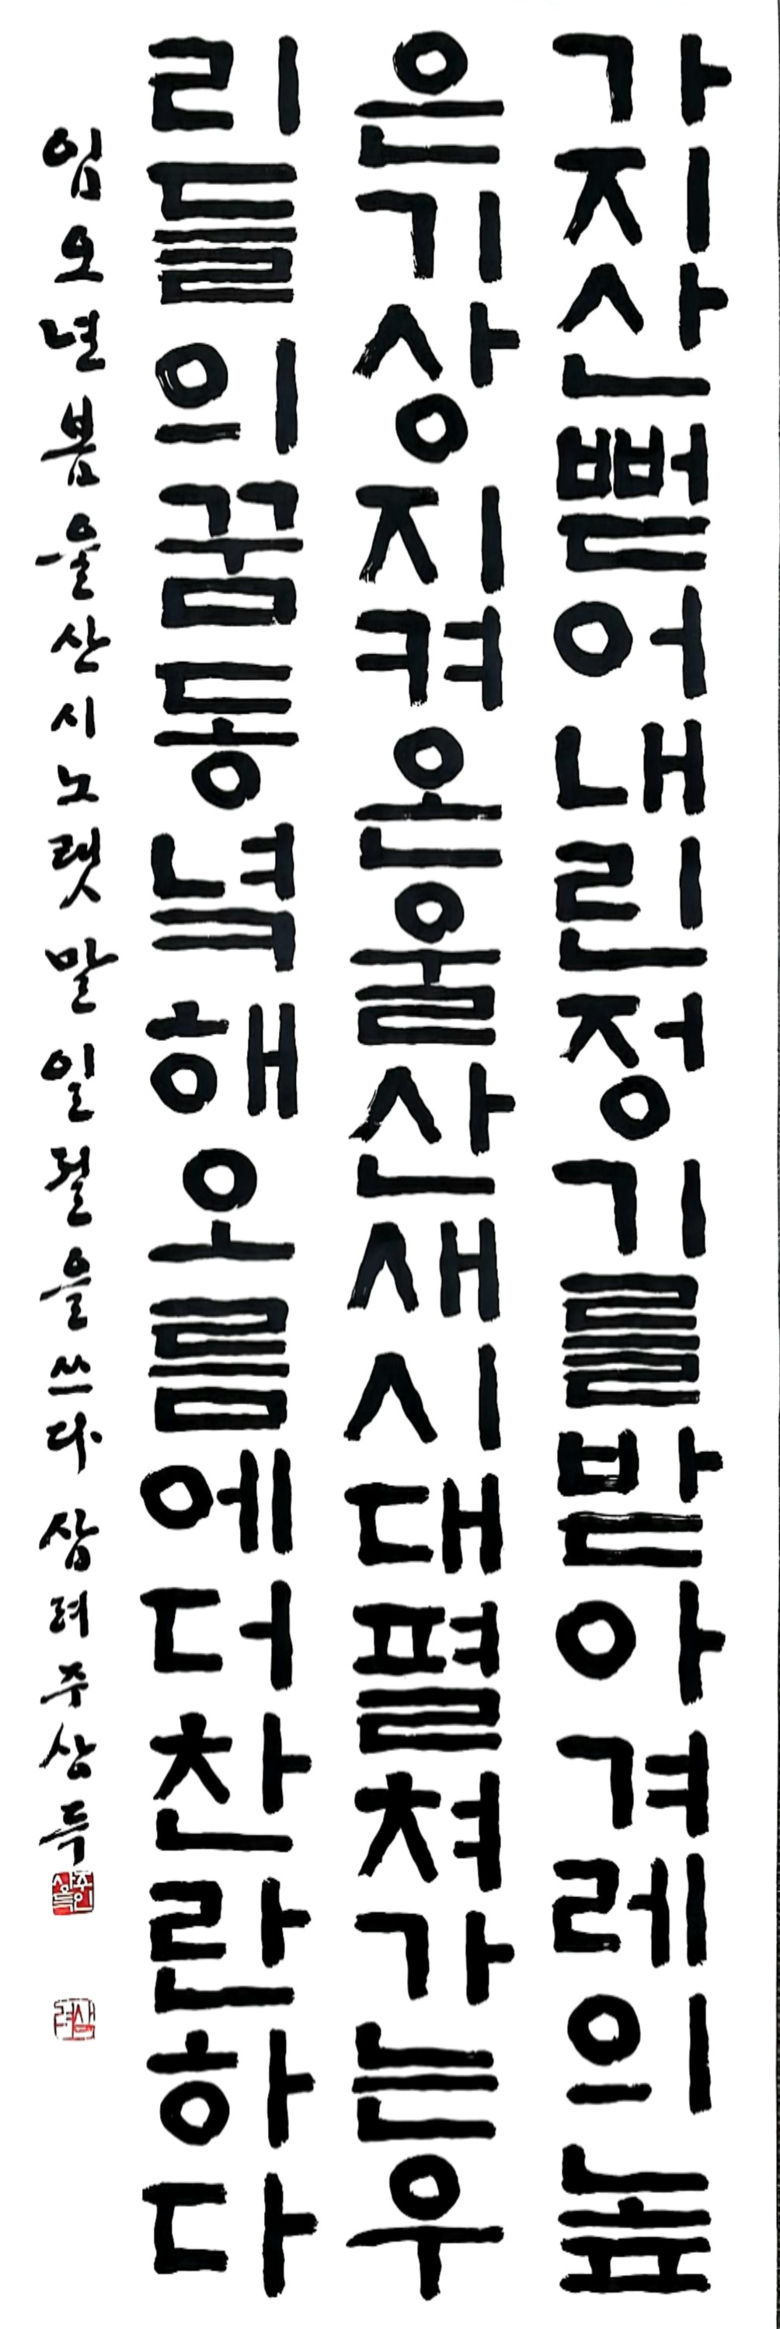 가지산뻗어내린정기를받아겨레의높
은기상지켜온울산새시대펼쳐가는우
리들의꿈동녘해오름에더찬란하다
임오년봄울산시노랫말일절을쓰다삼려주상득